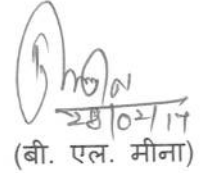 28/02/17
(बी. एल. मीना)